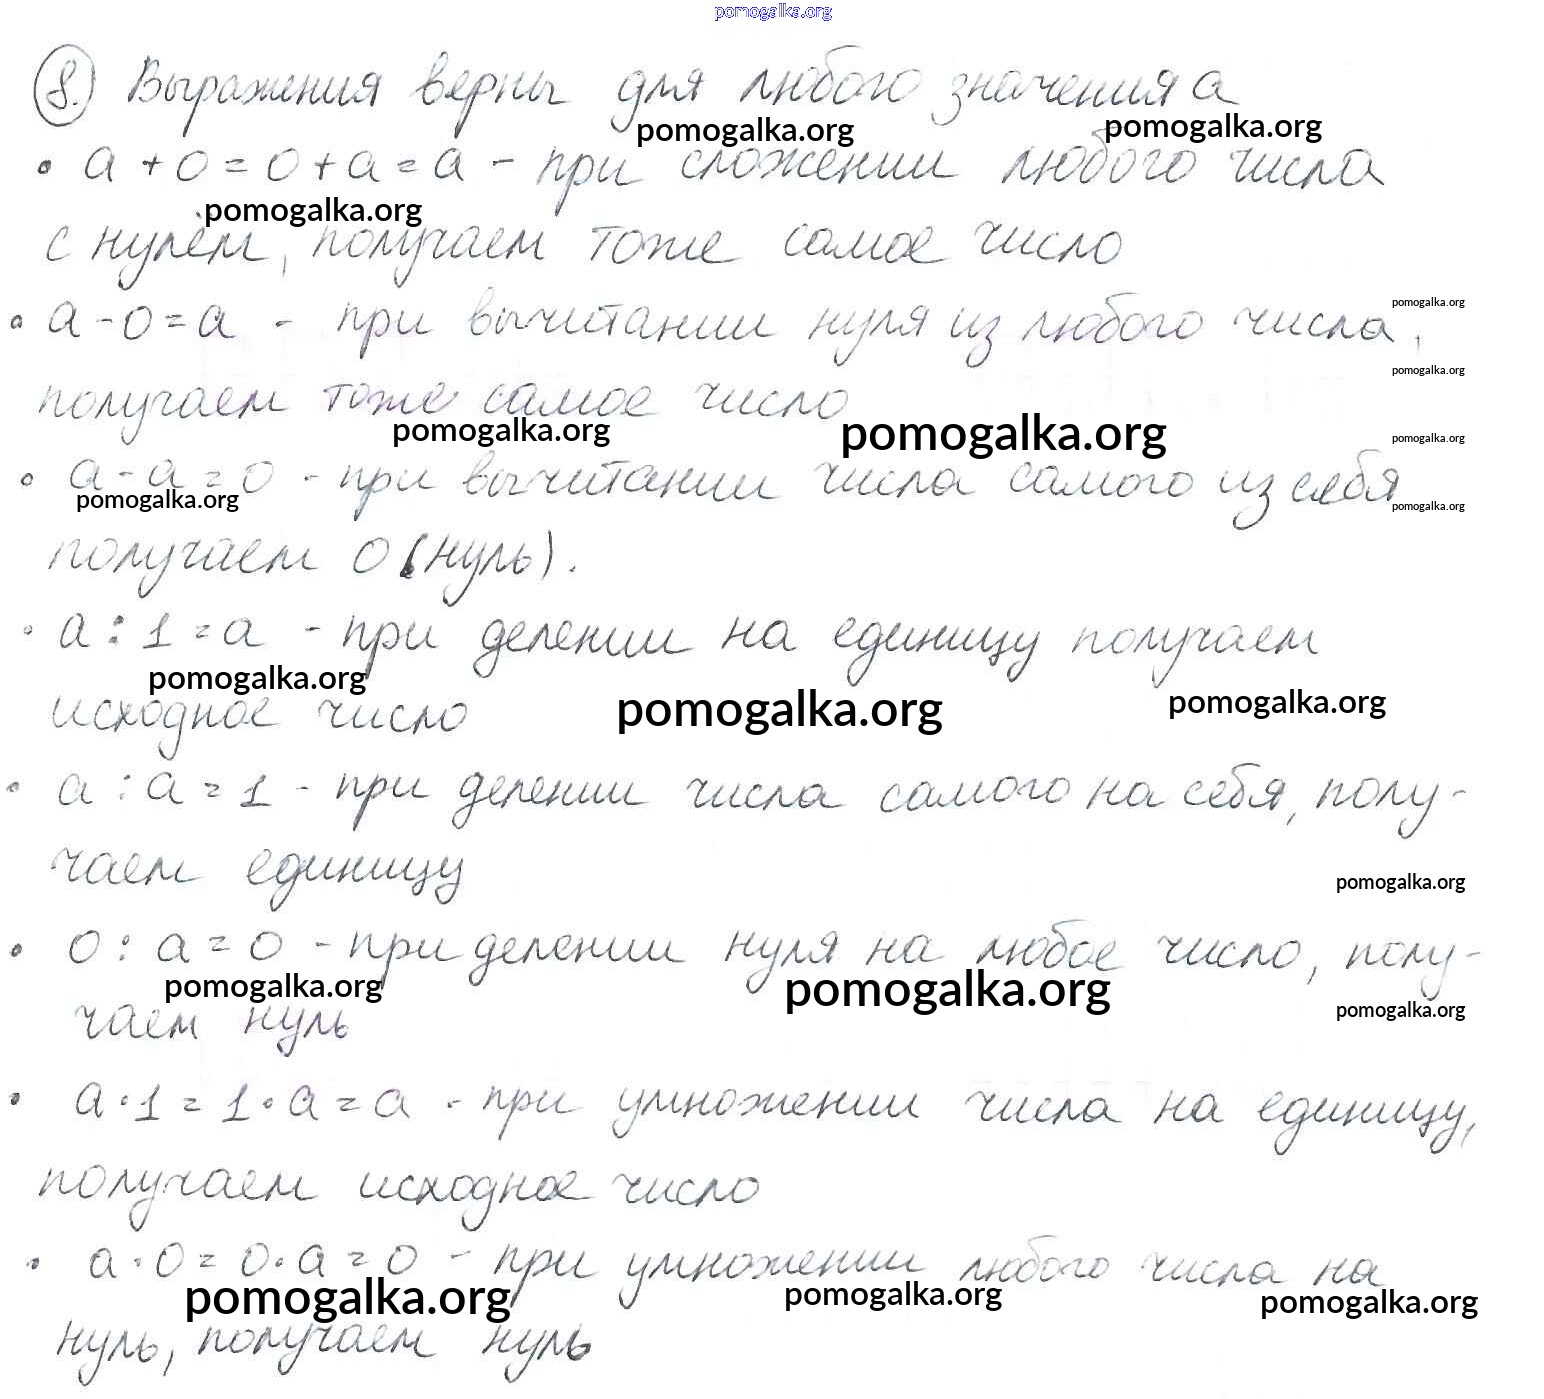 pomogalka.org
8. Выражения верны для любого значения а
pomogalka.org pomogalka.org
• а + 0 = 0 + а = а - при сложении любого числа
pomogalka.org
с нулём, получаем тоже самое число
pomogalka.org
• а - 0 = а - при вычитании нуля из любого числа,
pomogalka.org
получаем тоже самое число
pomogalka.org pomogalka.org pomogalka.org
• а - а = 0 - при вычитании числа самого из себя
pomogalka.org pomogalka.org
получаем 0 (нуль).
• а : 1 = а - при делении на единицу получаем
pomogalka.org
исходное число
pomogalka.org pomogalka.org
• а : а = 1 - при делении числа самого на себя, полу-
чаем единицу
pomogalka.org
• 0 : а = 0 - при делении нуля на любое число, полу-
pomogalka.org pomogalka.org pomogalka.org
чаем нуль
• а · 1 = 1 · а = а - при умножении числа на единицу,
получаем исходное число
• а · 0 = 0 · а = 0 - при умножении любого числа на
pomogalka.org pomogalka.org pomogalka.org
нуль, получаем нуль